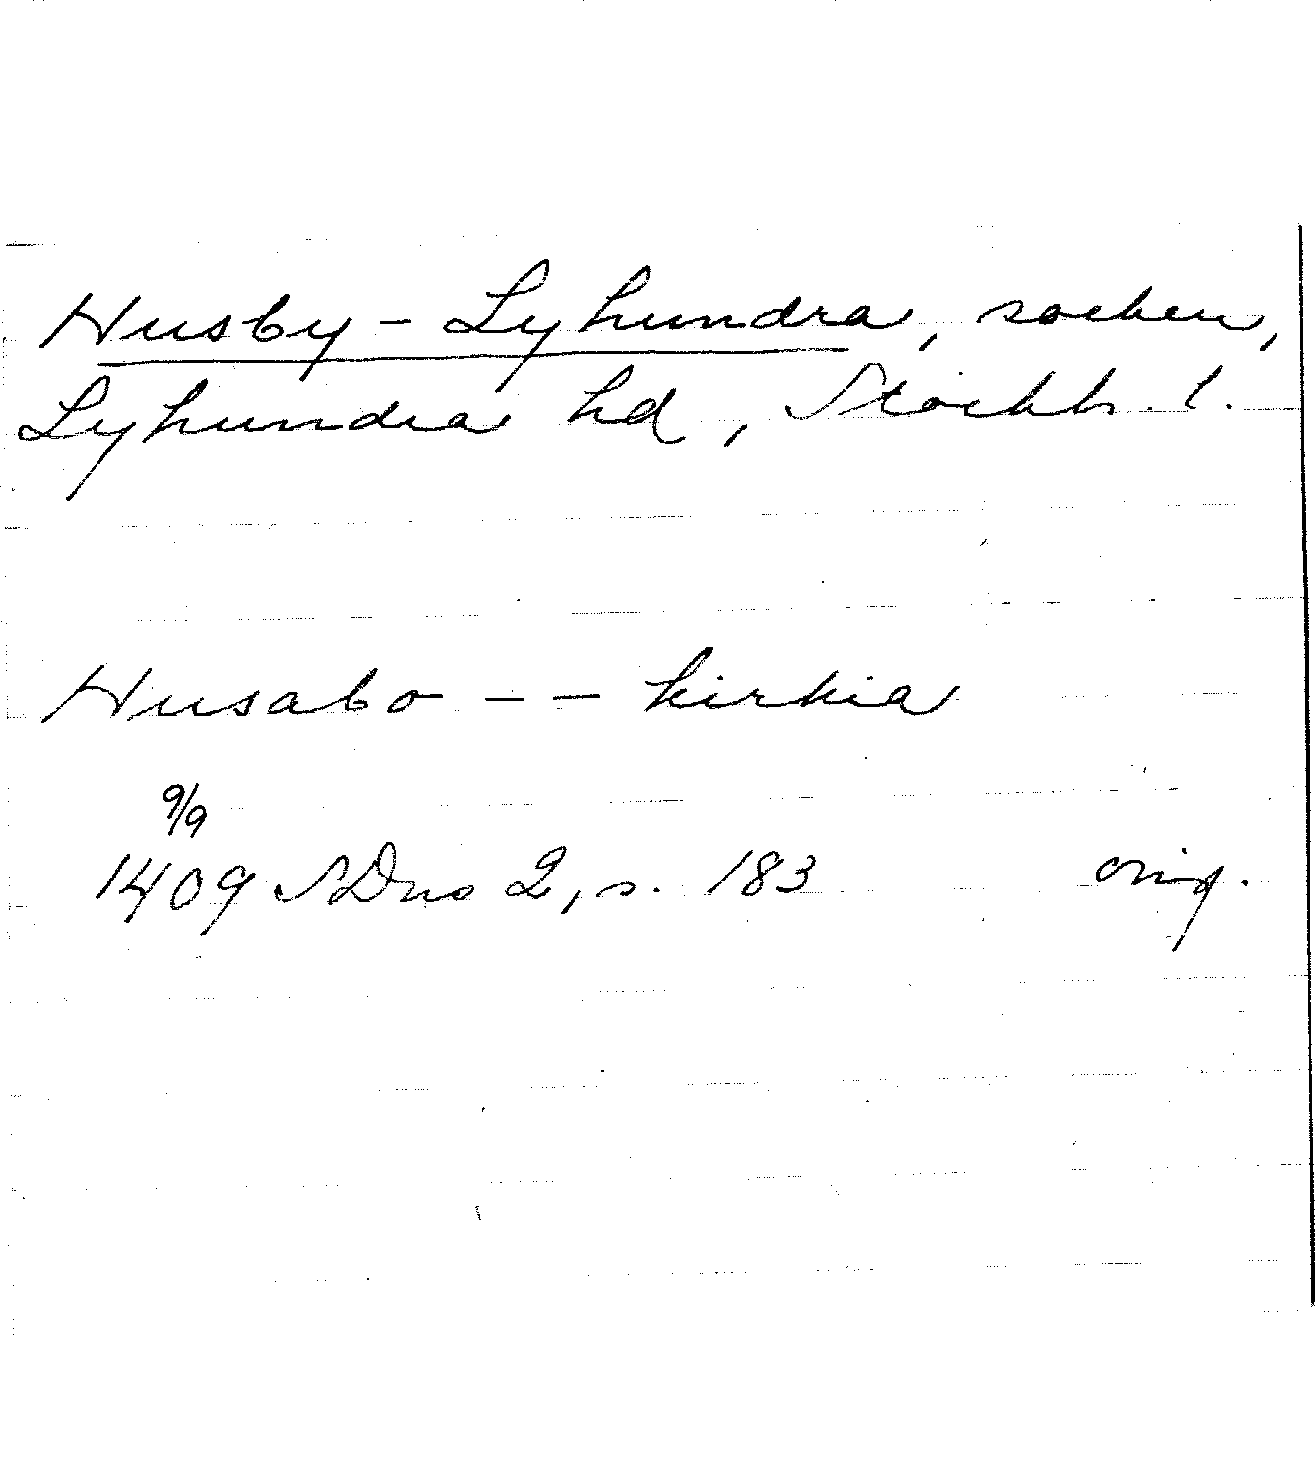 Husby-Lyhundra, socken,
Lyhundra hd, Stockh. l.
Husabo - - kirkia
9/9
1409 SDns 2, s. 183 orig.